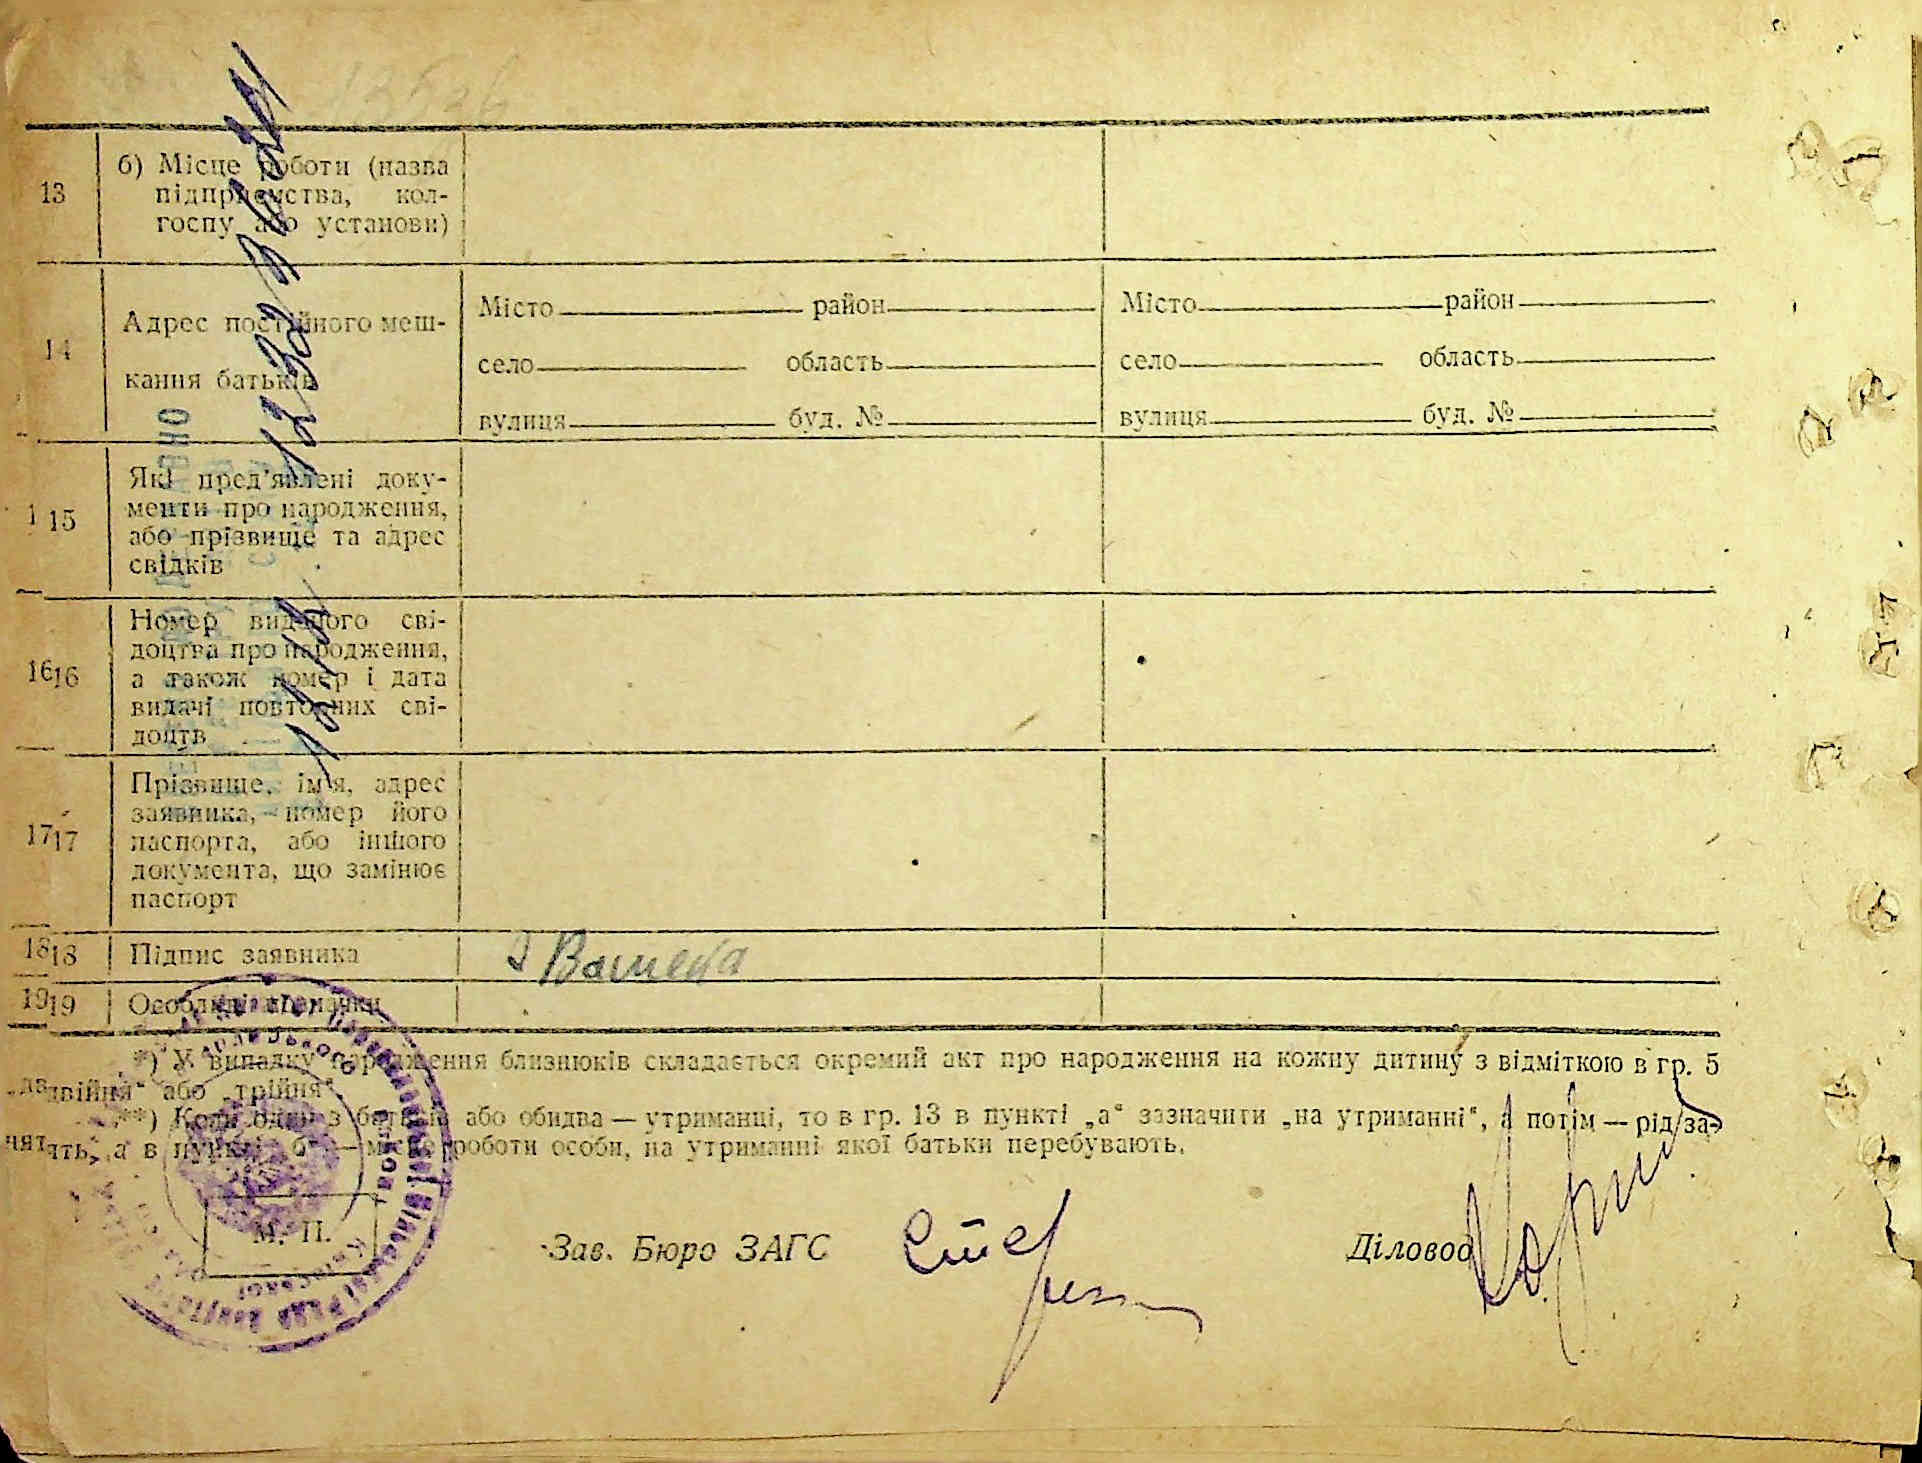 13
б) Місце роботи (назва
підприємства, кол-
госпу або установи)
14
Адрес постійного меш-
кання батьків
Місто район
село область
вулиця буд. №
Місто район
село область
вулиця буд. №
15
Які пред'явлені доку-
менти про народження,
або прізвище та адрес
свідків
16
Номер виданого сві-
доцтва про народження,
а також номер і дата
видачі повторних сві-
доцтв
17
Прізвище, ім'я, адрес
заявника, номер його
паспорта, або іншого
документа, що замінює
паспорт
18
Підпис заявника
19
Особливі відмітки
*) У випадку народження близнюків складається окремий акт про народження на кожну дитину з відміткою в гр. 5
„двійня" або „трійня".
**) Коли один з батьків або обидва — утриманці, то в гр. 13 в пункті „а" зазначити „на утриманні", а потім — рід за-
нять, а в пункті „б" — місце роботи особи, на утриманні якої батьки перебувають.
М. П.
Зав. Бюро ЗАГС
Діловод